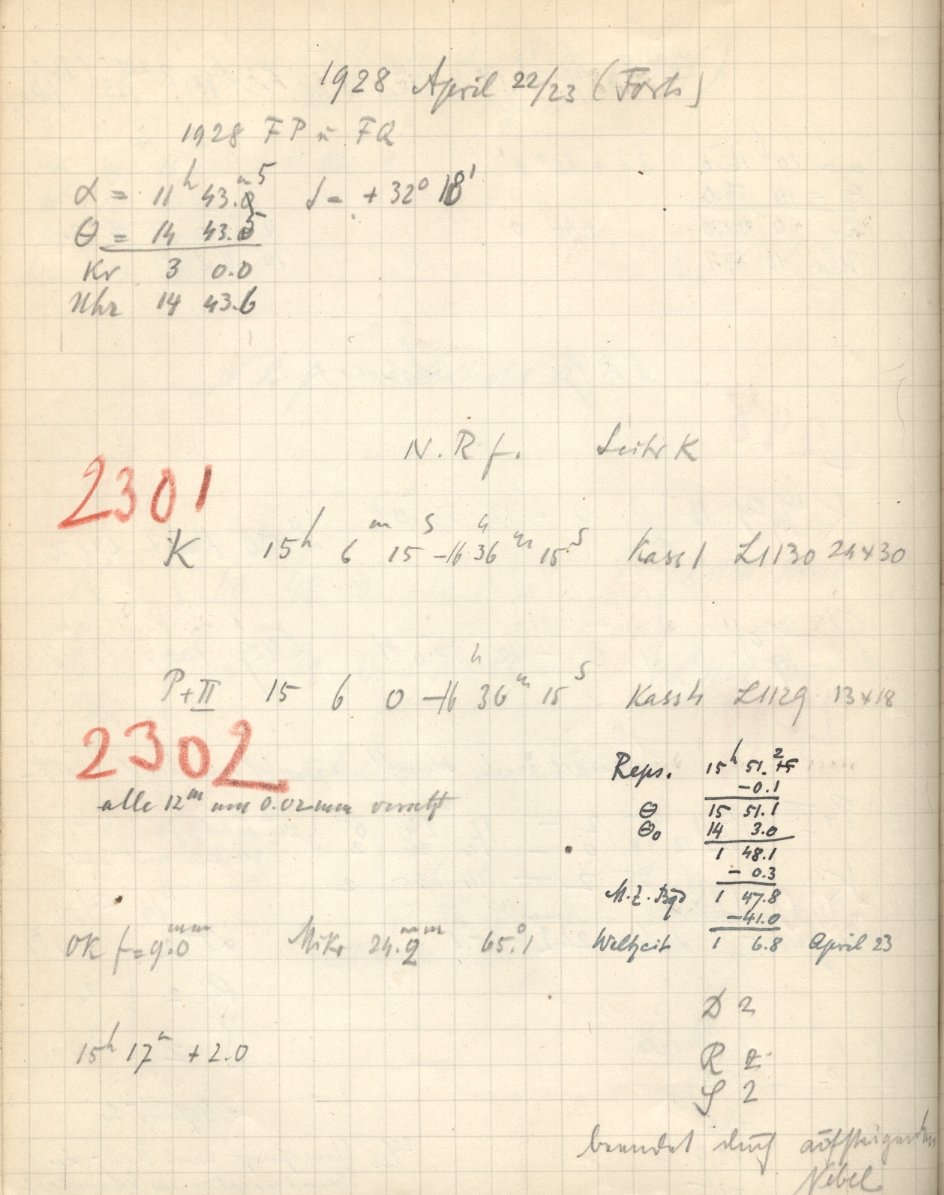 1928 April 22/23 (Forts)
1928 FP u FQ
α = 11h 43.m5 δ = +32° 18'
θ = 14 43.5
Kr 3 0.0
Uhr 14 43.6
N. R f. Leitr K
2301
K 15h 6m 15s –16h 36m 15s Kass 1 L1130 24x30
P+II 15 6 0 –16h 36m 15s Kass 4 L1129 13x18
2302
alle 12m um 0.02mm versetzt
Reps. 15h 51.2
-0.1
θ 15 51.1
θ0 14 3.0
1 48.1
- 0.3
M.Z. Bgd 1 47.8
-41.0
Weltzeit 1 6.8 April 23
OK f=9.0mm Mikr 24.2mm 65.°1
15h 17m +2.0
D 2
R 2
S 2
beendet durch aufsteigenden
Nebel